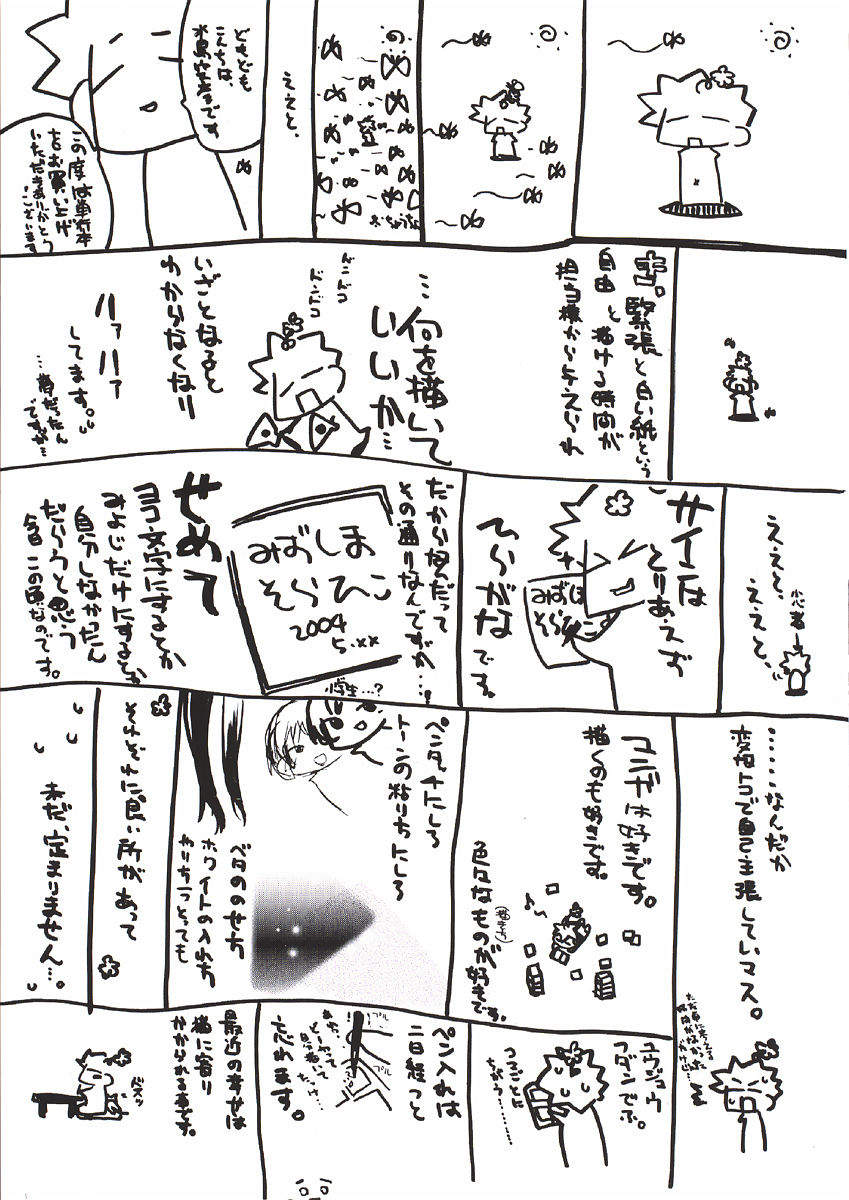 おちょうふじん
ええと、
どもども
こんちは、
水島空彦です。
この度は単行本
をお買い上げ
いただきありがとう
ございます
キ。緊張と白い紙という
自由と描ける時間が
担当様から与えられ
…何を描いて
いいか…
ドンドコ
ドンドコ
いざとなると
わからなくなり
ハァハァ
してます。
…春だったん
ですが…
ええと、
ええと、
小心者
サインは
とりあえず
ひらがな
です。
みずしま
そらひこ
だから何だって
その通りなんですが…。
みずしま
そらひこ
2004
5.××
小学生…?
せめて
ヨコ文字にするとか
みよじだけにするとか
自分しなかったん
だろうと思う
今日この頃なのです。
……なんだか
変なトコで自己主張していマス。
マンガは好きです。
描くのも好きです。
色々なものが好きです。
(描き方)
ペンタッチにしろ
トーンの貼り方にしろ
ベタののせ方
ホワイトの入れ方
やり方一つとっても
それぞれに良い所があって
まだ、定まりません…。
ユウジュウ
フダンでぶ。
つまるごとに
ちがう……
ペン入れは
二日経つと
忘れます。
あれ
どーやって
息抜いて
たっけ…
プル
プル
最近の幸せは
猫に寄り
かかられる事です。